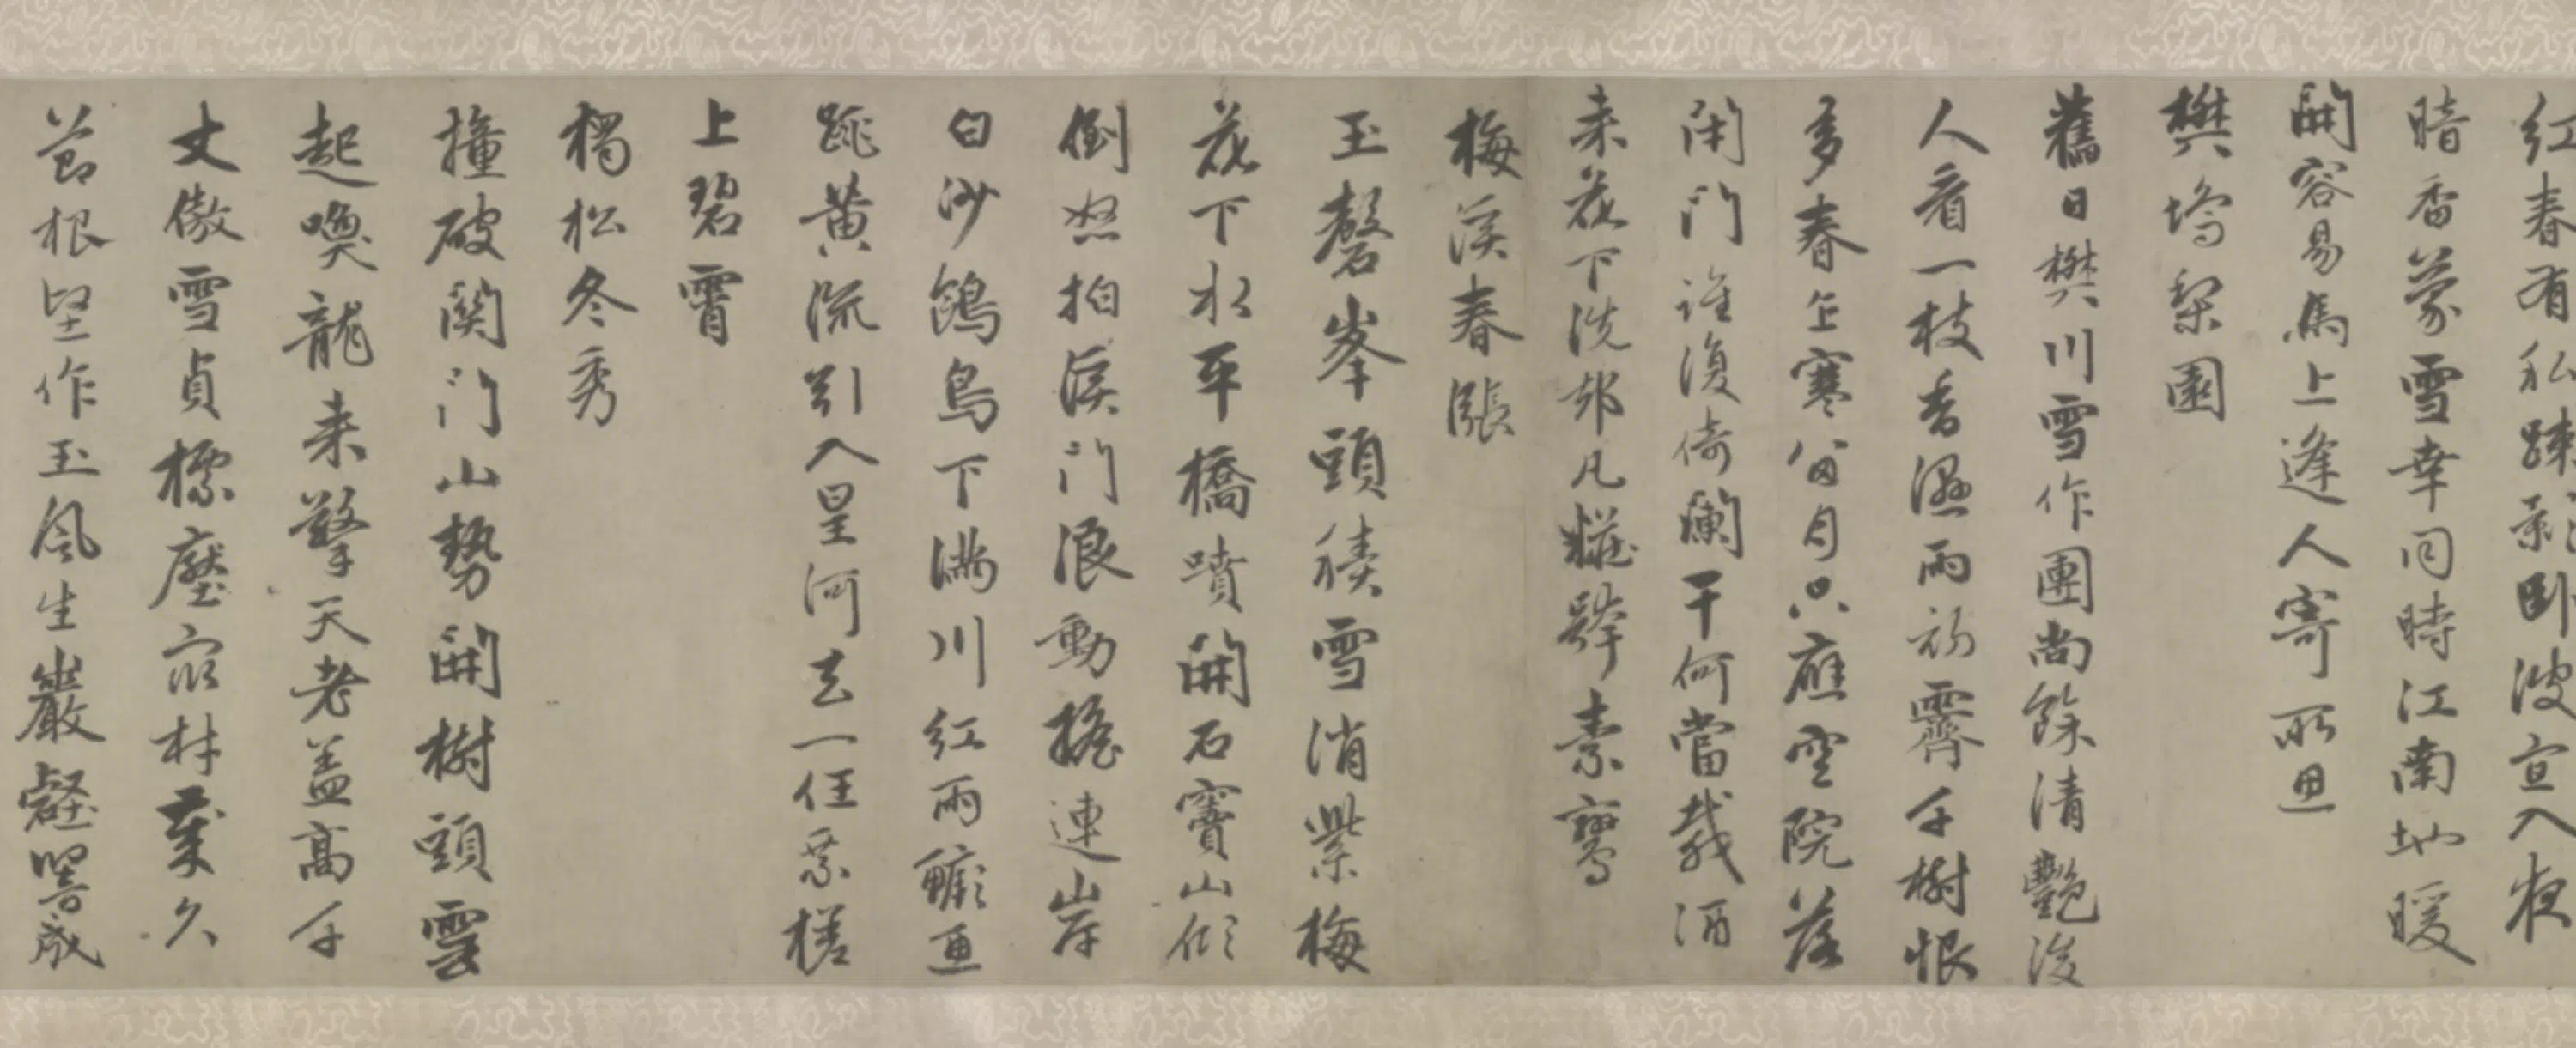 紅春有私踈影卧波宣入夜
暗香蒙雪幸同時江南地暖
開容易馬上逢人寄所思
樊塢梨園
舊日樊川雪作團尚餘清艷後
人看一枝香濕雨初霽千樹恨
多春上寒公自只應空院落
閑門誰復倚闌干何當載酒
来花下洗却凡糚舞素鸞
梅溪春漲
玉磬峯頭積雪消紫梅
花下水平橋噴開石竇山傾
倒怒拍溪門浪動搖連岸
白沙鷗鳥下滿川紅雨鱖魚
跳黄流引入星河去一任乘槎
上碧霄
獨松冬秀
撞破関門山勢開樹頭雲
起喚龍来擎天老盖高千
丈傲雪貞標壓衆材歲久
節根堅作玉風生巖壑響成